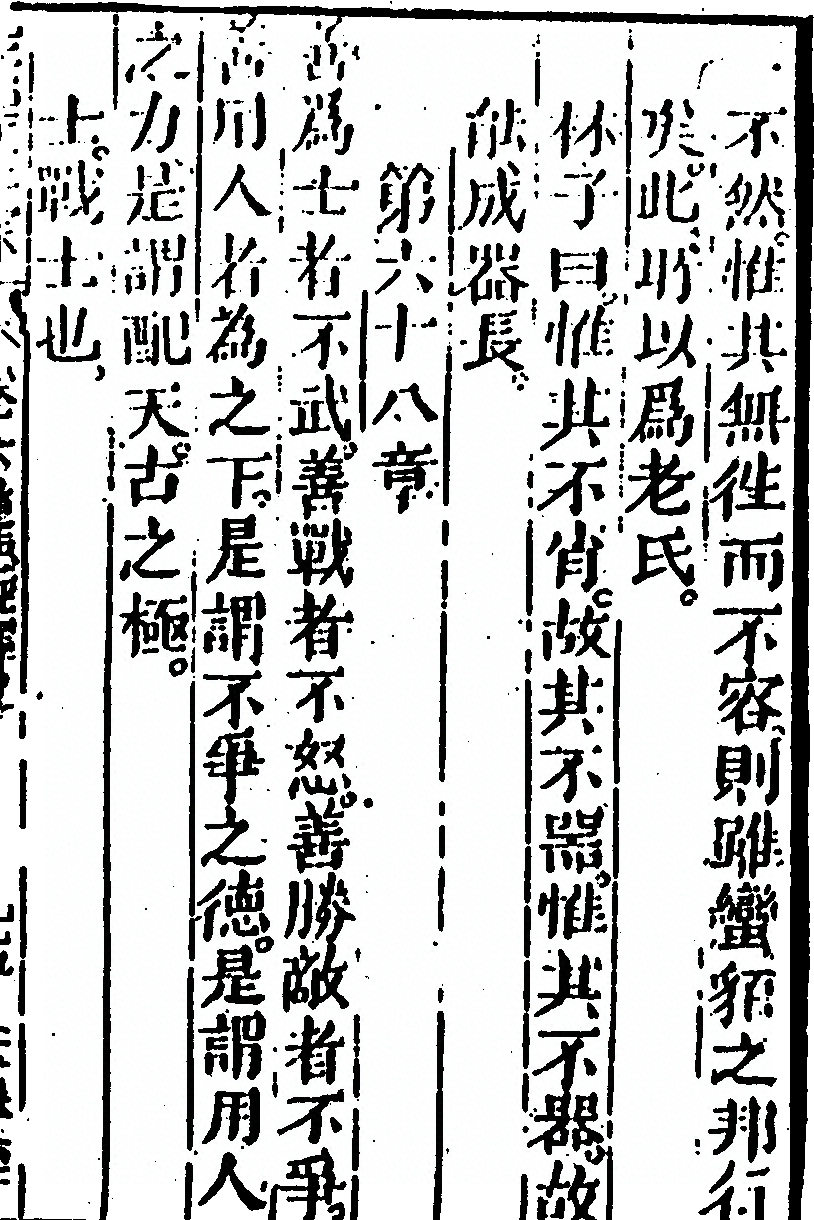 不然惟其無往而不容則雖蠻貊之邦行
矣此所以爲老氏
林子曰惟其不肖故其不器惟其不器故
能成器長
第六十八章
善爲士者不武善戰者不怒善勝敵者不爭
善用人者為之下是謂不爭之德是謂用人
之力是謂配天古之極
士戰士也